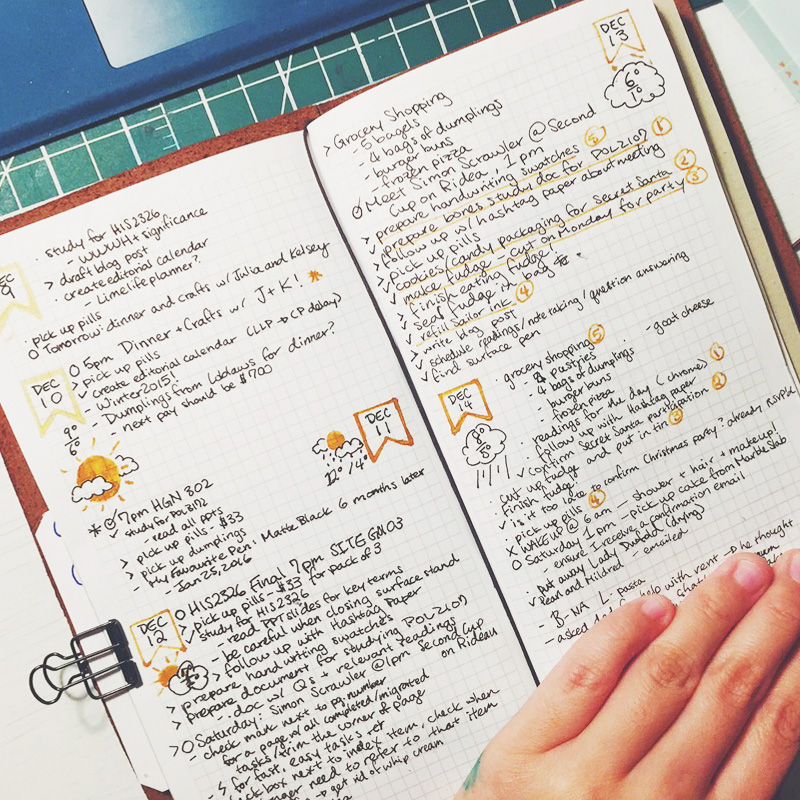 DEC 9
· study for HIS2326
- WWWH + significance
> draft blog post
· create editorial calendar
- Limelifeplanner?
· pick up pills
O Tomorrow: dinner and crafts w/ Julia and Kelsey
DEC 10
O 5pm Dinner + Crafts w/ J+K!
> pick up pills
✓ create editorial calendar (LLP → CP delay)
- Winter 2015
- Dumplings from Loblaws for dinner?
- next pay should be $1700
DEC 11
12° / 4°
* O 7pm HGN 302
✓ study for POL3172
- read all ppts
> pick up pills - $33
> pick up dumplings
- My Favourite Pen: Matte Black 6 months later
- Jan 25, 2016
DEC 12
O HIS2326 Final 7pm SITE GM03
> pick up pills - $33 for pack of 3
✓ study for HIS2326
- read PPT slides for key terms
- be careful when closing surface stand
> follow up with Hashtag Paper
> prepare handwriting swatches
> prepare document for studying POL2107
- doc w/ Qs + relevant readings
> O Saturday: Simon Scrawler @ 1pm Second Cup on Rideau
- check mark next to pg. number
for a page w/ all completed/migrated
tasks/trim the corner of page
for fast, easy tasks
box next to index item, check when
longer need to refer to that item
get rid of whip cream
DEC 13
6°
1°
> Grocery Shopping
- 5 bagels
- 4 bags of dumplings
- burger buns
- frozen pizza
O Meet Simon Scrawler @ Second
Cup on Rideau, 1 pm
> prepare handwriting swatches 5
✓ prepare bones study doc for POL2107 1
> follow up w/ hashtag paper about meeting
> pick up pills
✓ cookies/candy packaging for Secret Santa 2
✓ make fudge - cut on Monday for party 3
> finish eating fudge!
✓ seal fudge in bag
✓ refill Sailor ink 4
> write blog post
✓ schedule readings/note taking/question answering
✓ find surface pen
DEC 14
8°
5°
· grocery shopping 5
- pastries
- goat cheese
- 4 bags of dumplings
- burger buns
- frozen pizza
· readings for the day (chrome) 1
· follow up with Hashtag paper
✓ confirm Secret Santa participation 2
· cut up fudge and put in tin 3
· Finish fudge
✓ is it too late to confirm Christmas party? already RSVP'd
· pick up pills 4
X WAKE UP @ 6 am - shower + hair + makeup!
O Saturday 1pm - pick up cake from Marble Slab
- ensure I receive a confirmation email
✓ put away Lady (drying)
Pearl and Mildred - emailed
B - NA L - pasta
- asked dad for help with rent → he thought